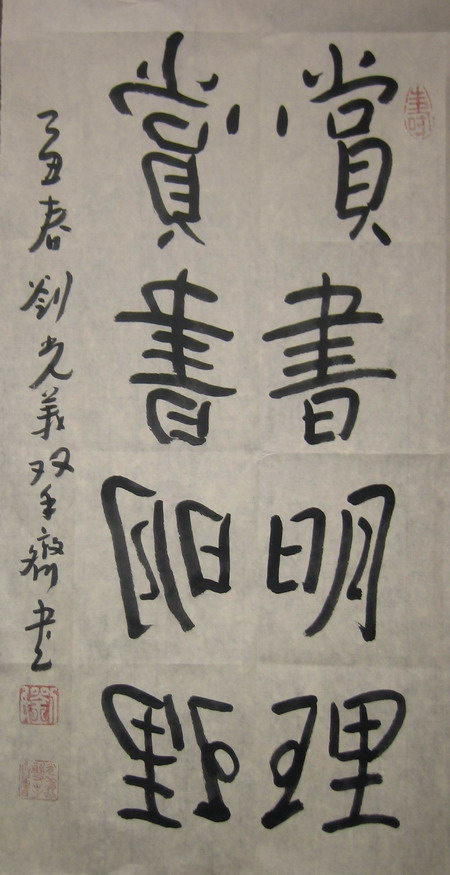 賞書明理
賞書明理
己丑春劉光義双手齊書